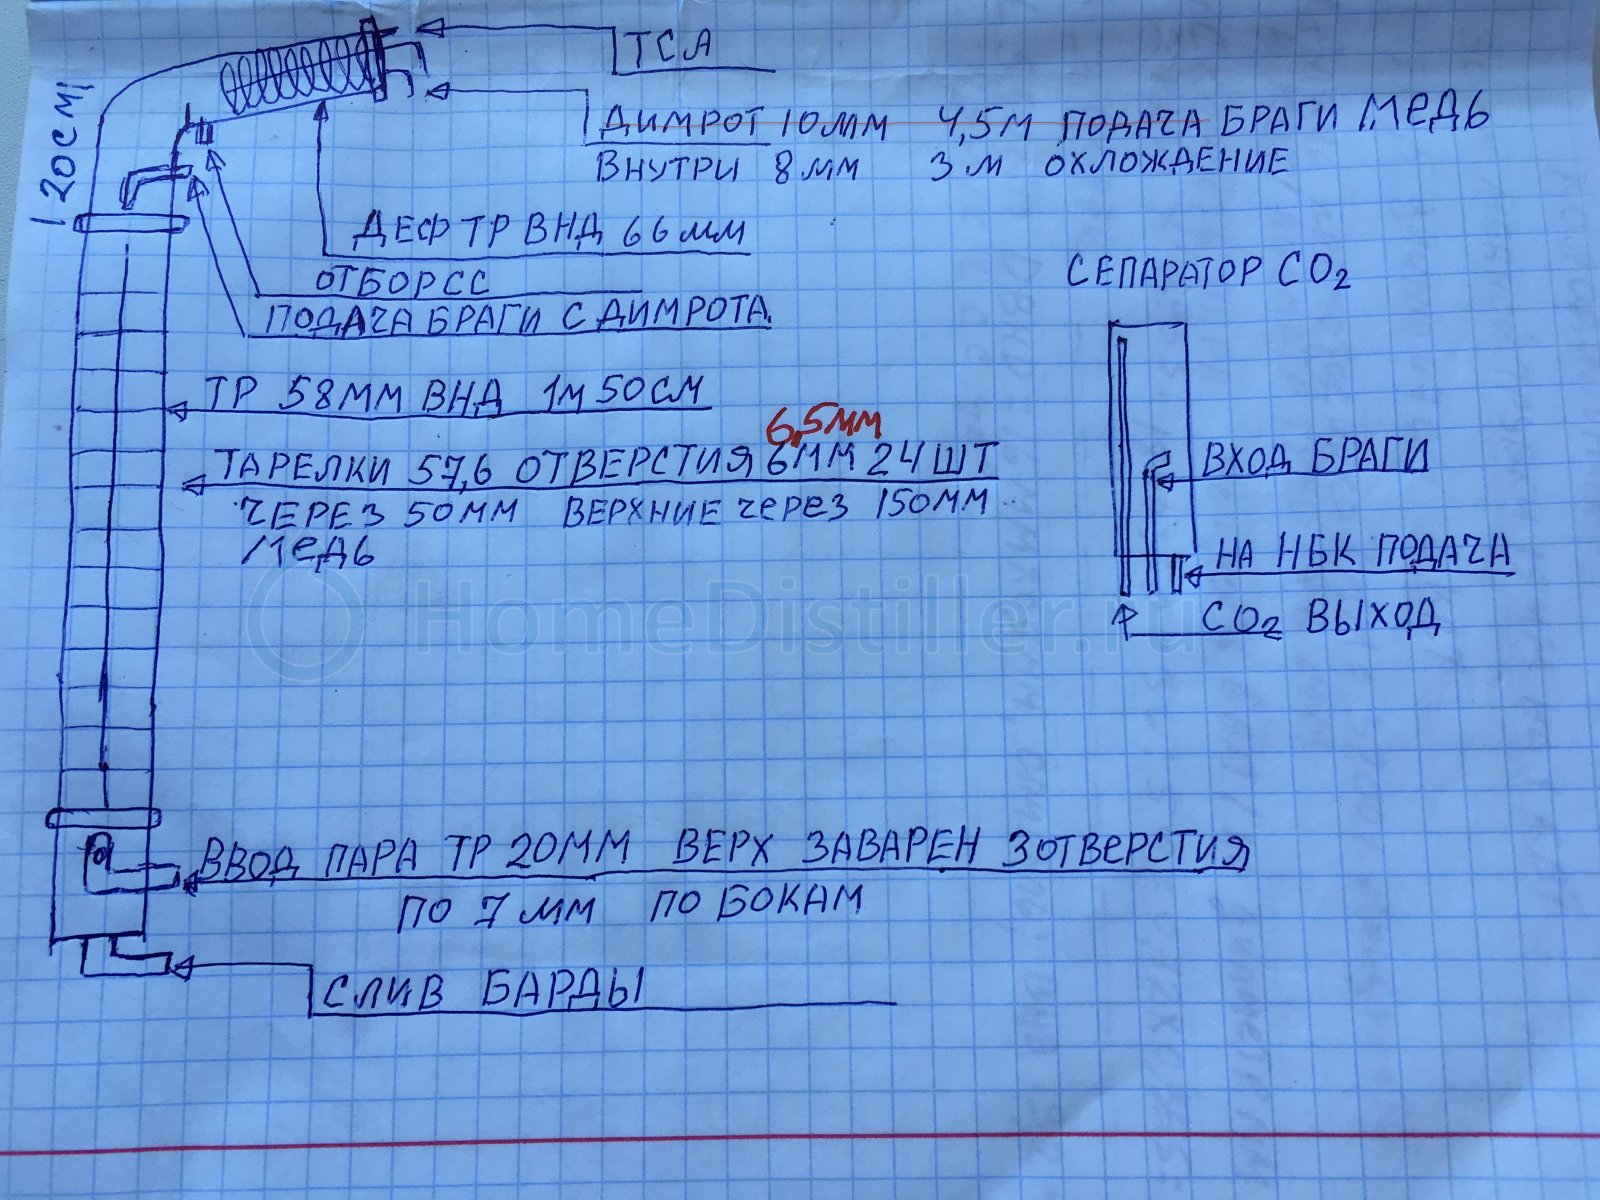 ТСА
20СМ
ДИМРОТ 10ММ 4,5М ПОДАЧА БРАГИ МЕДЬ
ВНУТРИ 8ММ 3М ОХЛОЖДЕНИЕ
ДЕФ ТР ВНД 66ММ
ОТБОР СС
ПОДАЧА БРАГИ С ДИМРОТА.
СЕПАРАТОР СО2
ТР 58ММ ВНД 1М 50СМ
6,5ММ
ТАРЕЛКИ 57,6 ОТВЕРСТИЯ 6ММ 24ШТ
ЧЕРЕЗ 50ММ ВЕРХНИЕ ЧЕРЕЗ 150ММ
МЕДЬ
ВХОД БРАГИ
НА НБК ПОДАЧА
СО2 ВЫХОД
HomeDistiller.ru
ВВОД ПАРА ТР 20ММ ВЕРХ ЗАВАРЕН 3 ОТВЕРСТИЯ
ПО 7ММ ПО БОКАМ
СЛИВ БАРДЫ